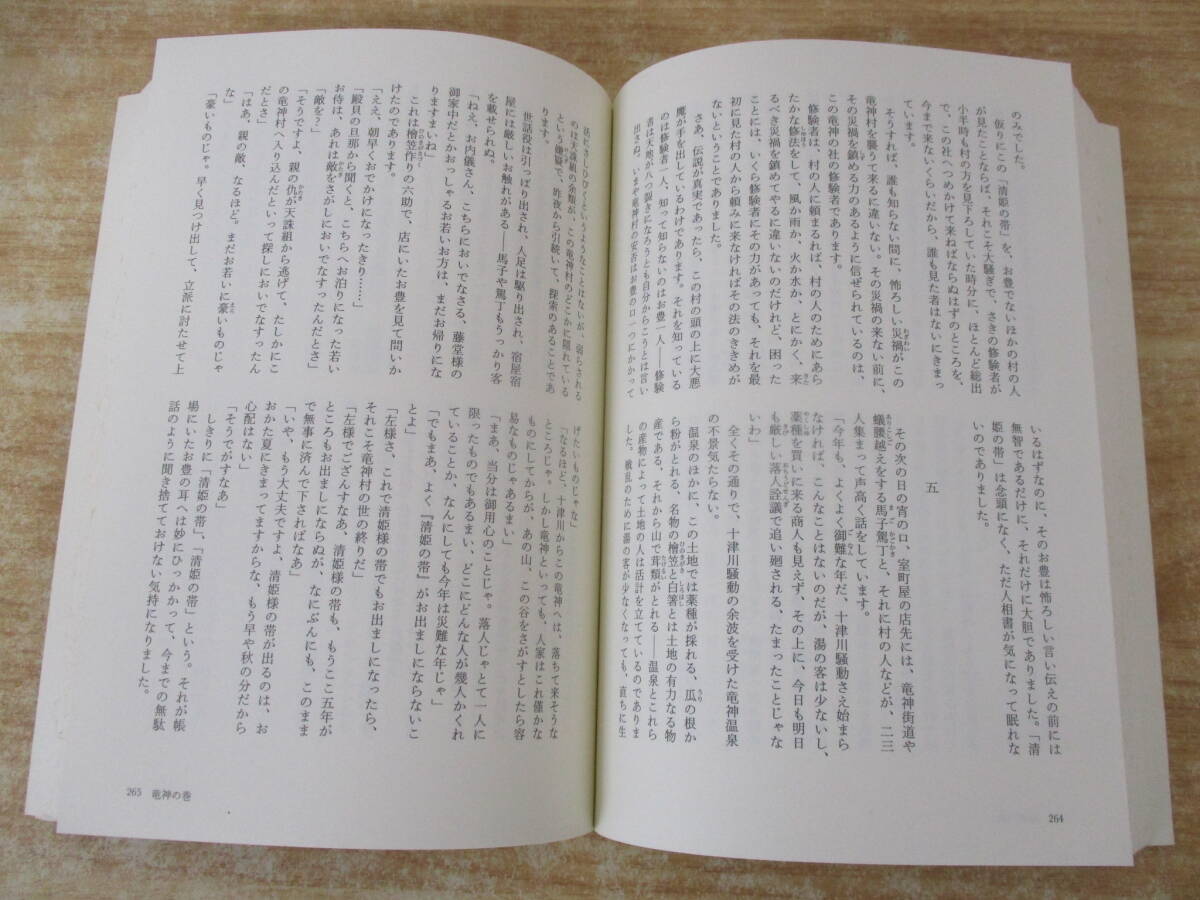 のみでした。
仮りにこの「清姫の帯」を、お豊でないほかの村の人
が見たことならば、それこそ大騒ぎで、さきの修験者が
小半時も村の方を見下ろしていた時分に、ほとんど総出
で、この社へつめかけて来ねばならぬはずのところを、
今まで来ないくらいだから、誰も見た者はないにきまっ
ています。
そうすれば、誰も知らない間に、怖ろしい災禍がこの
竜神村を襲うて来るに違いない。その災禍の来ない前に、
その災禍を鎮める力のあるように信ぜられているのは、
この竜神の社の修験者であります。
修験者は、村の人に頼まれれば、村の人のためにあら
たかな修法をして、風か雨か、火か水か、とにかく、来
るべき災禍を鎮めてやるに違いないのだけれど、困った
ことには、いくら修験者にその力があっても、それを最
初に見た村の人から頼みに来なければその法のききめが
ないということでありました。
さあ、伝説が真実であったら、この村の頭の上に大悪
魔が手を出しているわけであります。それを知っている
のは修験者一人、知って知らないのはお豊一人――修験
者は天地が八つ裂きになろうとも自分からこうとは言い
出さぬ。いまや竜神村の安否はお豊の口一つにかかって
いるはずなのに、そのお豊は怖ろしい言い伝えの前には
無智であるだけに、それだけに大胆でありました。「清
姫の帯」は念頭になく、ただ人相書が気になって眠れな
いのでありました。
五
その次の日の宵の口、室町屋の店先には、竜神街道や
蟻腰越えをする馬子駕丁と、それに村の人などが、二三
人集まって声高く話をしています。
「今年も、よくよく御難な年だ、十津川騒動さえ始まら
なければ、こんなことはないのだが、湯の客は少ないし、
薬種を買いに来る商人も見えず、その上に、今日も明日
も厳しい落人詮議で追い廻される、たまったことじゃな
いわ」
全くその通りで、十津川騒動の余波を受けた竜神温泉
の不景気たらない。
温泉のほかに、この土地では薬種が採れる、瓜の根か
ら粉がとれる、名物の檜笠と白箸とは土地の有力なる物
産である、それから山で茸類がとれる――温泉とこれら
の産物によって土地の人は活計を立てているのでありま
した。戦乱のために湯の客が少なくなっても、直ちに生
活にさしひびくというようなことはないが、弱らされる
のは天誅組の余類が、この竜神村のどこかに隠れている
という嫌疑で、昨夜から引続いて、探索のあることであ
ります。
世話役は引っぱり出され、人足は駆り出され、宿屋宿
屋には厳しいお触れがある――馬子や駕丁もうっかり客
を載せられぬ。
「ねえ、お内儀さん、こちらにおいでなさる、藤堂様の
御家中だとかおっしゃるお若いお方は、まだお帰りにな
りますまいね」
これは檜笠作りの六助で、店にいたお豊を見て問いか
けたのであります。
「ええ、朝早くおでかけになったきり……」
「殿貝の旦那から聞くと、こちらへお泊りになった若い
お侍は、あれは敵をさがしにおいでなすったんだとさ」
「敵を?」
「そうですよ、親の仇が天誅組から逃げて、たしかにこ
の竜神村へ入り込んだといって探しにおいでなすったん
だとさ」
「はあ、親の敵、なるほど。まだお若いに豪いものじゃ
な」
「豪いものじゃ。早く見つけ出して、立派に討たせて上
げたいものじゃな」
「なるほど、十津川からこの竜神へは、落ちて来そうな
ところじゃ。しかし竜神といっても、人家はこれ僅かな
ものにしてからが、あの山、この谷をさがすとしたら容
易なものじゃあるまい」
「まあ、当分は御用心のことじゃ。落人じゃとて一人に
限ったものでもあるまい、どこにどんな人が幾人かくれ
ていることか、なんにしても今年は災難な年じゃ」
「でもまあ、よく『清姫の帯』がお出ましにならないこ
とよ」
「左様さ、これで清姫様の帯でもお出ましになったら、
それこそ竜神村の世の終りだ」
「左様でございますなあ、清姫様の帯も、もうここ五年が
ところもお出ましにならぬが、なにぶんにも、このまま
で無事に済んで下さればなあ」
「いや、もう大丈夫ですよ、清姫様の帯が出るのは、お
おかた夏にきまってますからな、もう早や秋の分だから
心配はない」
「そうでがすなあ」
しきりに「清姫の帯」、「清姫の帯」という。それが帳
場にいたお豊の耳へは妙にひっかかって、今までの無駄
話のように聞き捨てておけない気持になりました。
264
265 竜神の巻